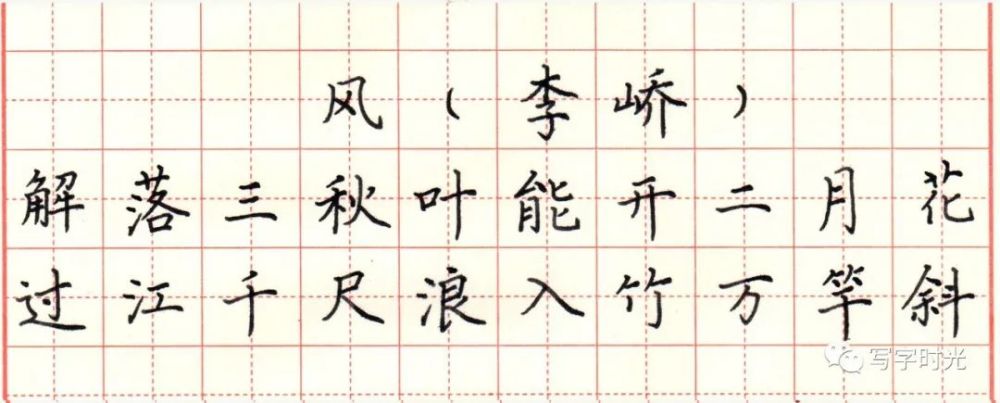 风（李峤）
解落三秋叶能开二月花
过江千尺浪入竹万竿斜
写字时光